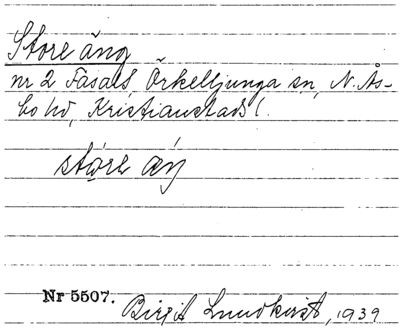 Store äng
nr 2 Fasalt, Örkelljunga sn, N. Ås-
bo hd, Kristianstads l.
støre äŋ
Nr 5507. Birgit Lundkvist, 1939